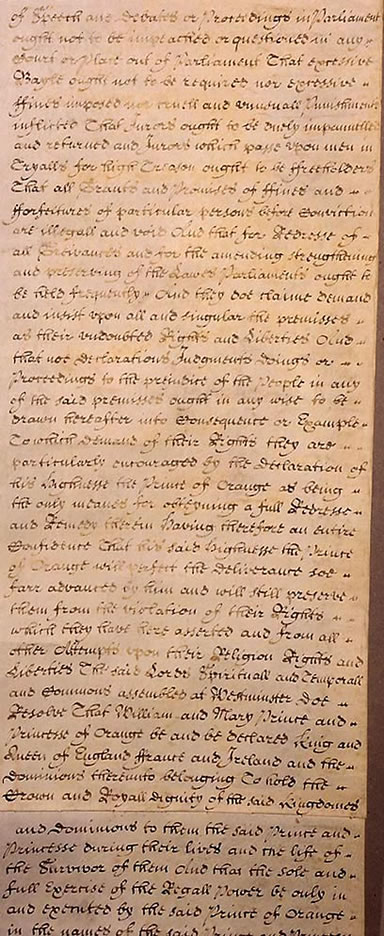 of Speech and Debates or Proceedings in Parliament
ought not to be impeached or questioned in any
Court or Place out of Parliament That excessive
Bayle ought not to be required nor excessive
ffines imposed nor cruell and unusuall Punishments
inflicted That Jurors ought to be duely impannelled
and returned and Jurors which passe upon men in
Tryalls for high Treason ought to be ffreeholders
That all Grants and Promises of ffines and
fforfeitures of particular persons before Conviction
are illegall and void And that for Redresse of
all Greivances and for the amending strengthening
and preserving of the Lawes Parliaments ought to
be held frequently And they doe claime demand
and insist upon all and singular the premisses
as their undoubted Rights and Liberties And
that noe Declarations Judgments Doings or
Proceedings to the prejudice of the People in any
of the said premisses ought in any wise to be
drawn hereafter into Consequence or Example
To which Demand of their Rights they are
particularly encouraged by the Declaration of
his Highnesse the Prince of Orange as being
the only meanes for obteyning a full Redresse
and Remedy therein Having therefore an entire
Confidence That his said Highnesse the Prince
of Orange will perfect the Deliverance soe
farr advanced by him and will still preserve
them from the violation of their Rights
which they have here asserted and from all
other Attempts upon their Religion Rights and
Liberties The said Lords Spirituall and Temporall
and Commons assembled at Westminster doe
Resolve That William and Mary Prince and
Princesse of Orange be and be declared King and
Queen of England ffrance and Ireland and the
dominions thereunto belonging To hold the
Crown and Royall dignity of the said Kingdomes
and Dominions to them the said Prince and
Princesse during their lives and the life of
the Survivor of them And that the sole and
full Exercise of the Regall Power be only in
and executed by the said Prince of Orange
in the names of the said Prince and Princesse